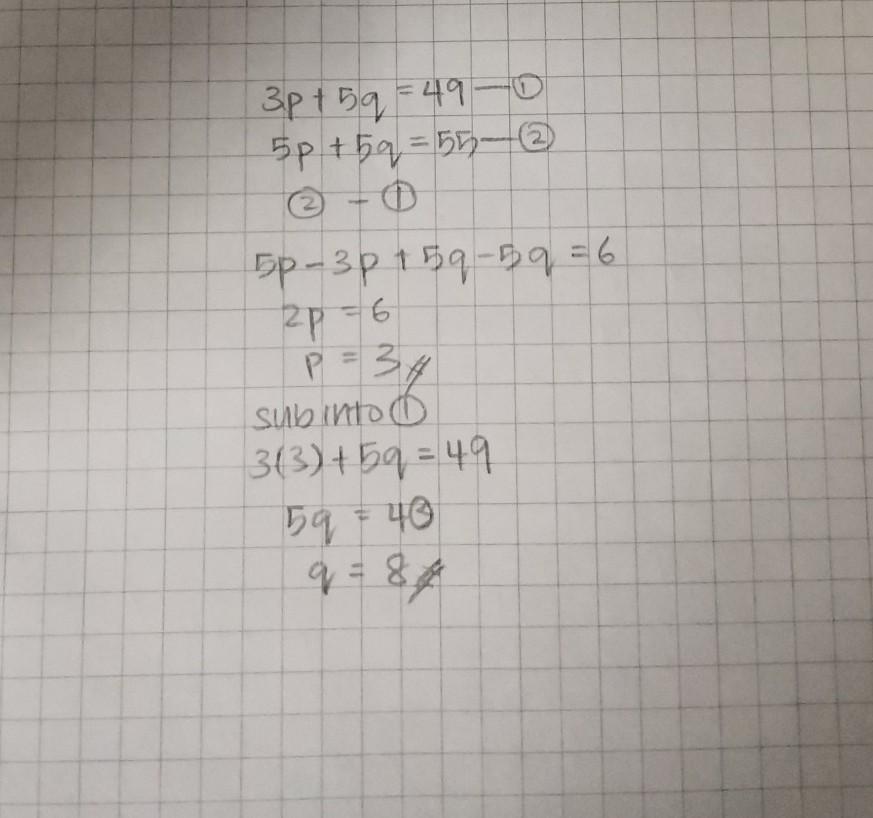 3p + 5q = 49 — ①
5p + 5q = 55 — ②
② - ①
5p - 3p + 5q - 5q = 6
2p = 6
p = 3
sub into ①
3(3) + 5q = 49
5q = 40
q = 8